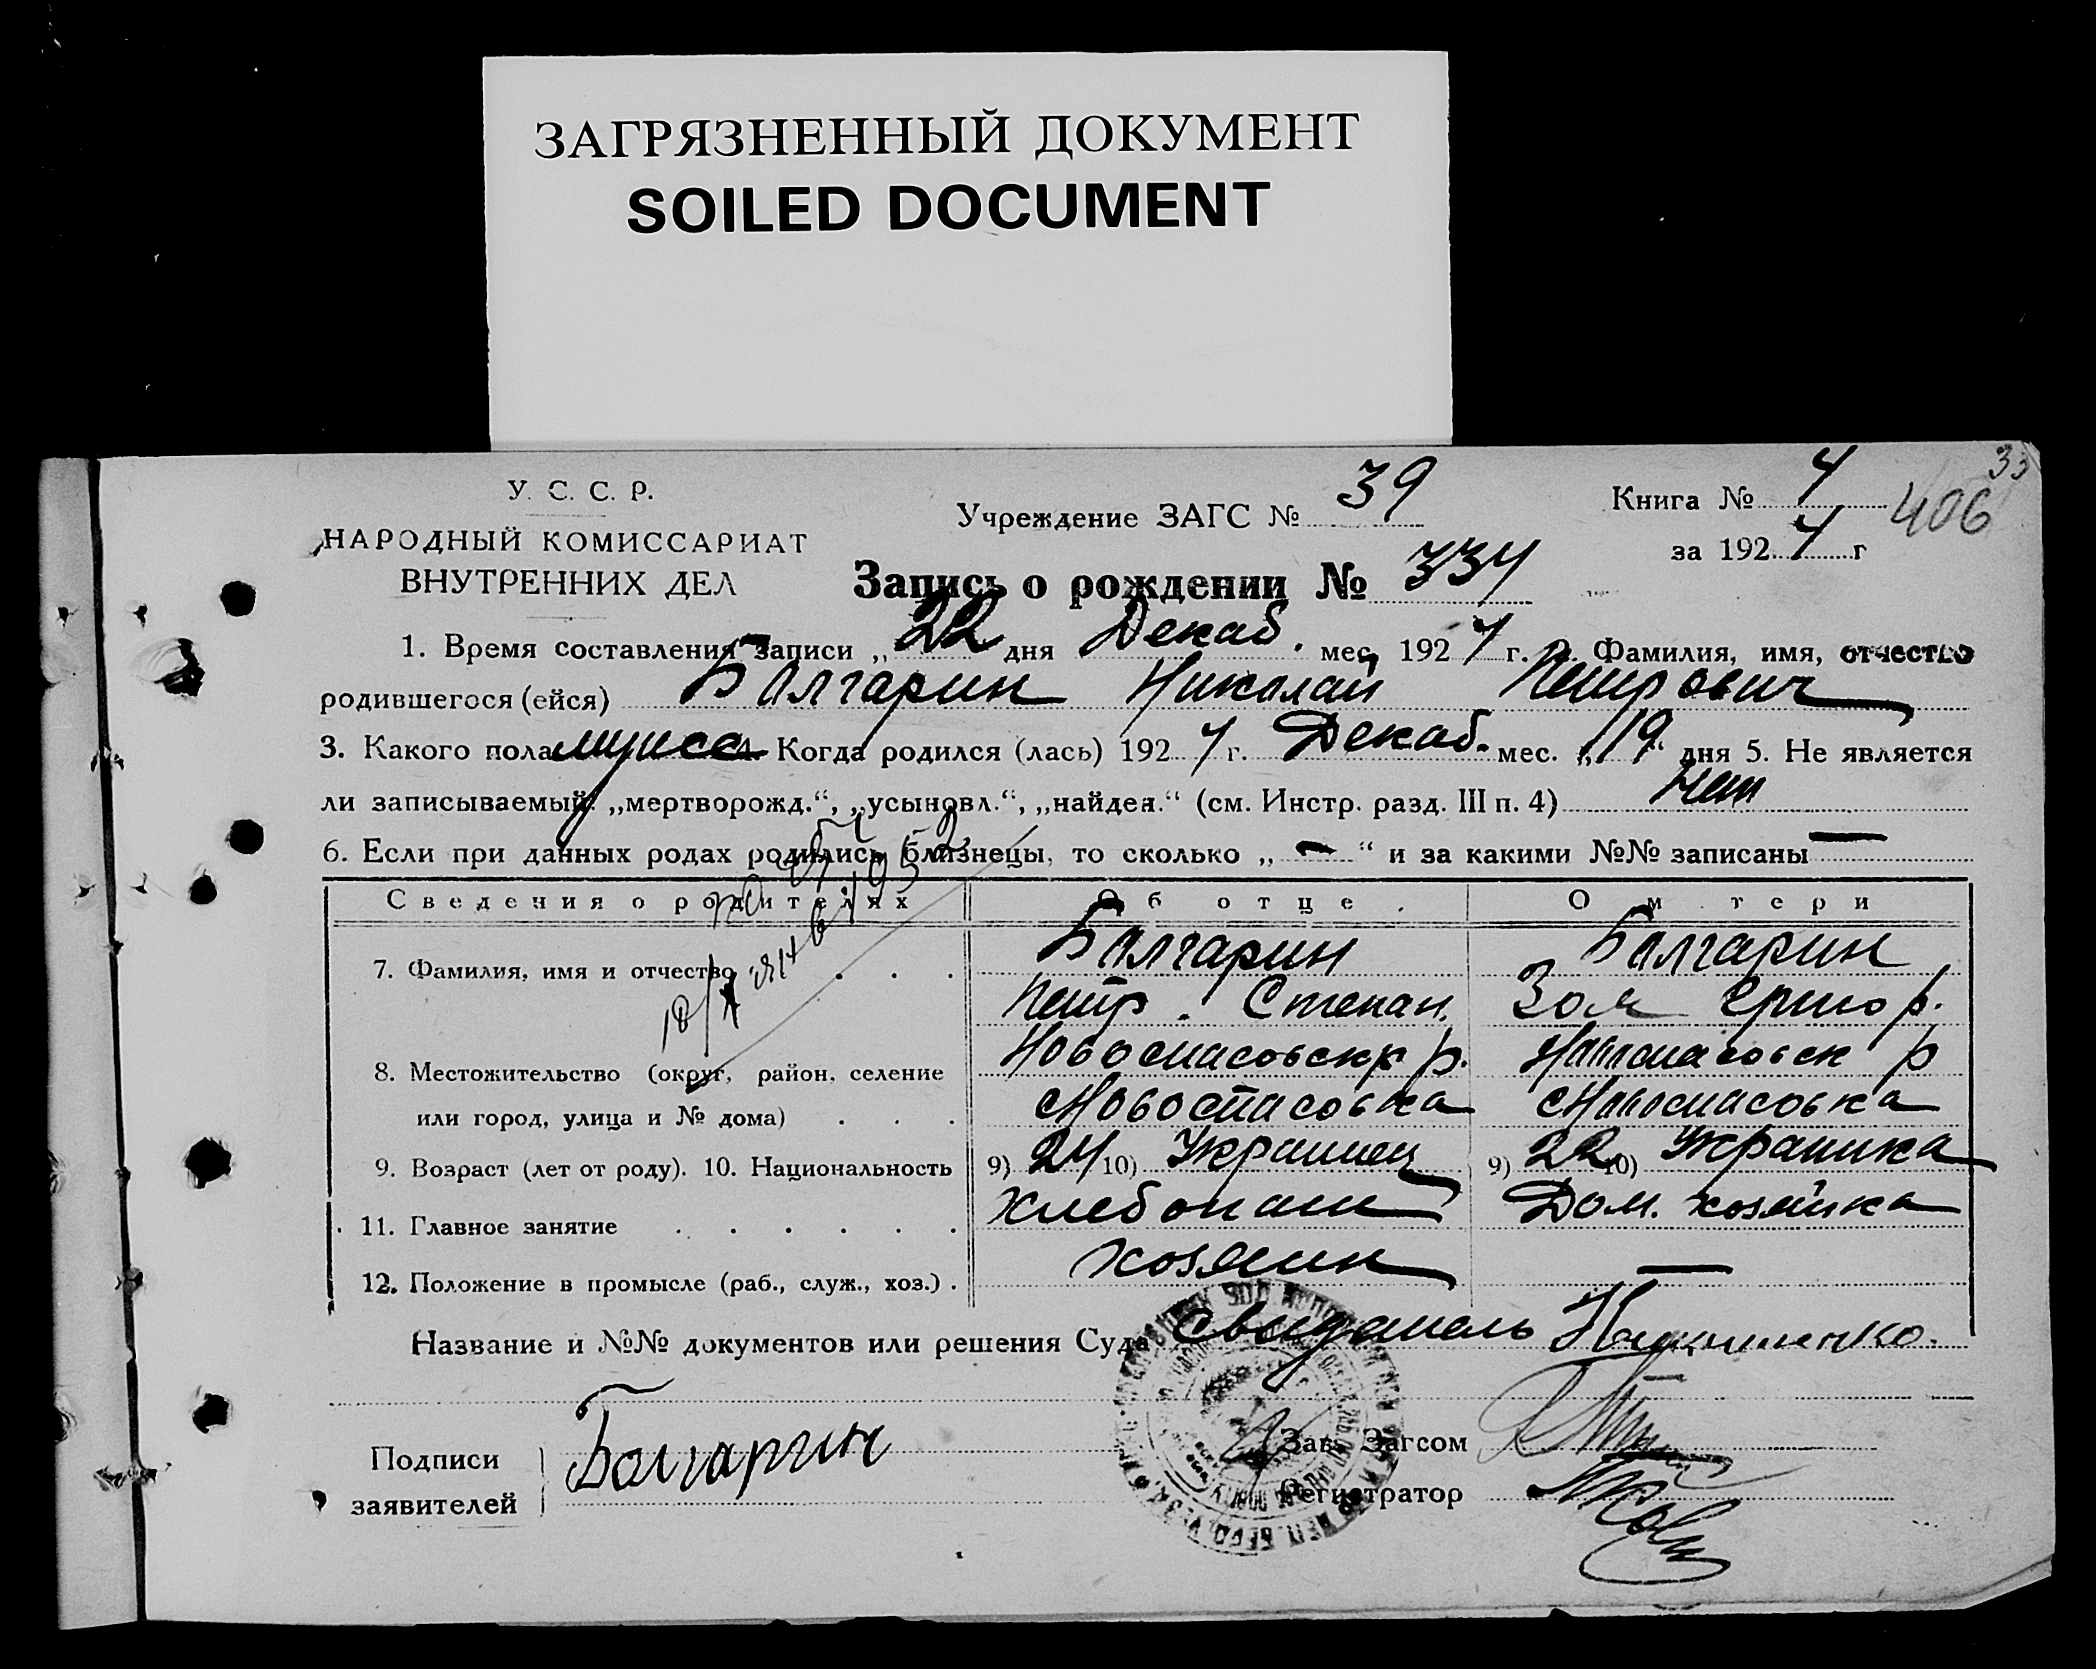 ЗАГРЯЗНЕННЫЙ ДОКУМЕНТ
SOILED DOCUMENT
У. С. С. Р.
НАРОДНЫЙ КОМИССАРИАТ
ВНУТРЕННИХ ДЕЛ
Учреждение ЗАГС № 39
Книга № 4
406
за 1924 г
Запись о рождении № 334
1. Время составления записи „22 дня Декаб. мес. 1924 г. 2. Фамилия, имя, отчество
родившегося (ейся) Болгарин Николай Петрович
3. Какого пола мужск 4. Когда родился (лась) 1924 г. Декаб. мес. „19“ дня 5. Не является
ли записываемый: „мертворожд.“, „усыновл.“, „найден.“ (см. Инстр. разд. III п. 4) Нет
6. Если при данных родах родились близнецы, то сколько „ — “ и за какими №№ записаны —
Сведения о родителях Об отце. О матери
7. Фамилия, имя и отчество . . . Болгарин Болгарин
Петр. Степан. Зоя Григор.
8. Местожительство (округ, район, селение Новоспасовск р. Новоспасовск р
или город, улица и № дома) . . . с Новоспасовка с Новоспасовка
9. Возраст (лет от роду). 10. Национальность 9) 24 10) Украинец 9) 22 10) Украинка
11. Главное занятие . . . . . . Хлебопаш Дом. хозяйка
12. Положение в промысле (раб., служ., хоз.) . хозяин —
Название и №№ документов или решения Суда Свидетель
Подписи
заявителей Болгарин
Зав. Загсом
Регистратор